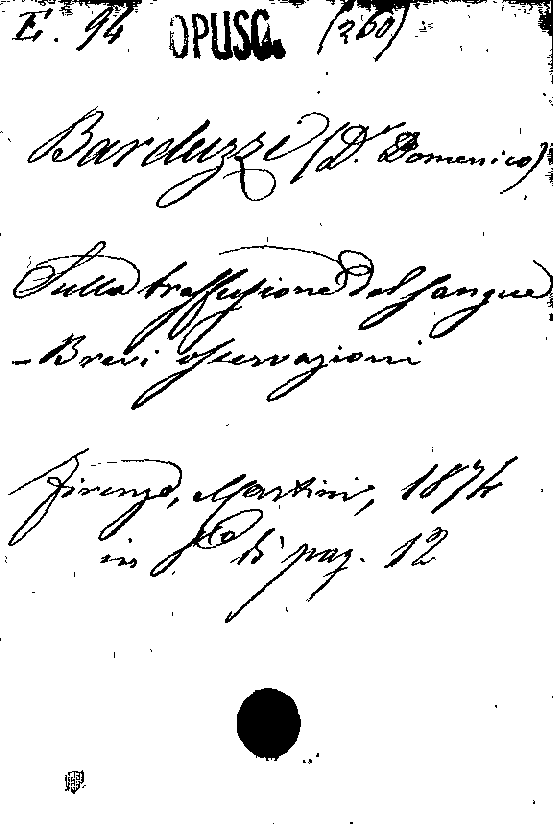 E. 94 OPUSC. (260)
Barduzzi (Dr. Domenico)
Sulla trasfusione del sangue
- Brevi osservazioni
Firenze, Martini, 1874
in 8vo di pag. 12